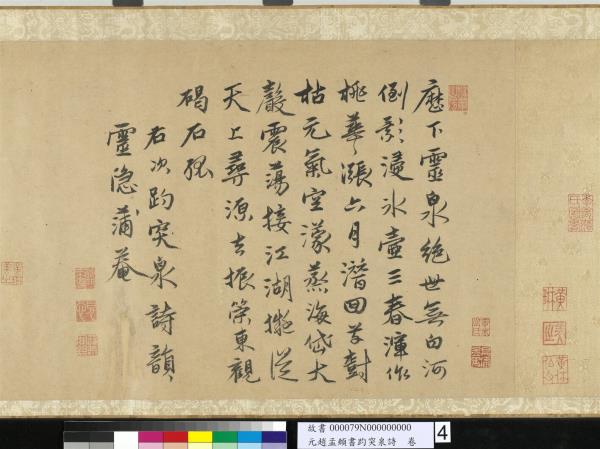 歷下靈泉絕世無白河
倒影浸冰壺三春渾作
桃華漲六月潛回草樹
枯元氣空濛蒸海岱大
聲震蕩接江湖擬從
天上尋源去振策東觀
碣石孤
右次趵突泉詩韻
靈隱蒲菴
故書 000079N000000000
元趙孟頫書趵突泉詩 卷
4